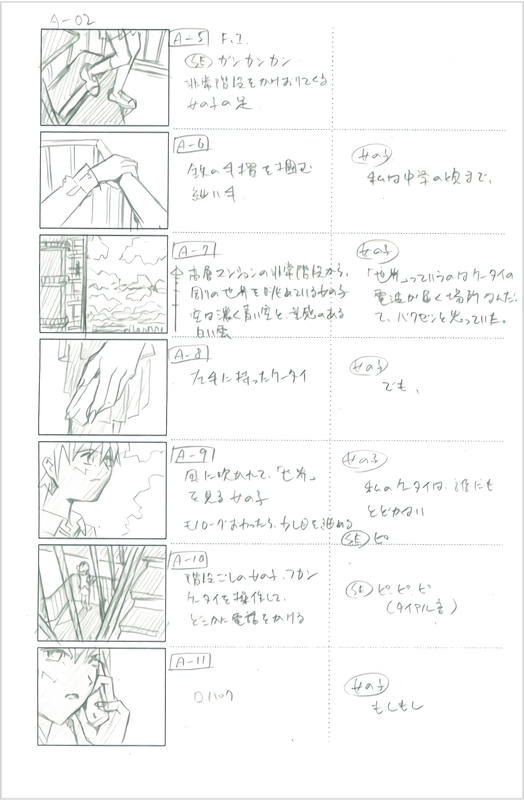 A-02
A-5 F.I
SE ガンカンカン
非常階段をかけおりてくる
女の子の足
A-6
鉄の手摺を掴む
細い手
女の子
私は中学の頃まで、
A-7
高層マンションの非常階段から、
周りの世界を眺めている女の子
空は濃く青い空と、量感のある
白い雲
女の子
「世界」っていうのはケータイの
電波が届く場所なんだ
て、バクゼンと思っていた。
A-8
左手に持ったケータイ
女の子
でも、
A-9
風に吹かれて、「世界」
を見る女の子
モノローグおわったら、少し目を
女の子
私のケータイは、誰にも
とどかない
SE ピ
A-10
階段ごしの女の子、フカン
ケータイを操作して、
どこかに電話をかける
SE ピ、ピ、ピ
(ダイアル音)
A-11
口パク
女の子
もしもし